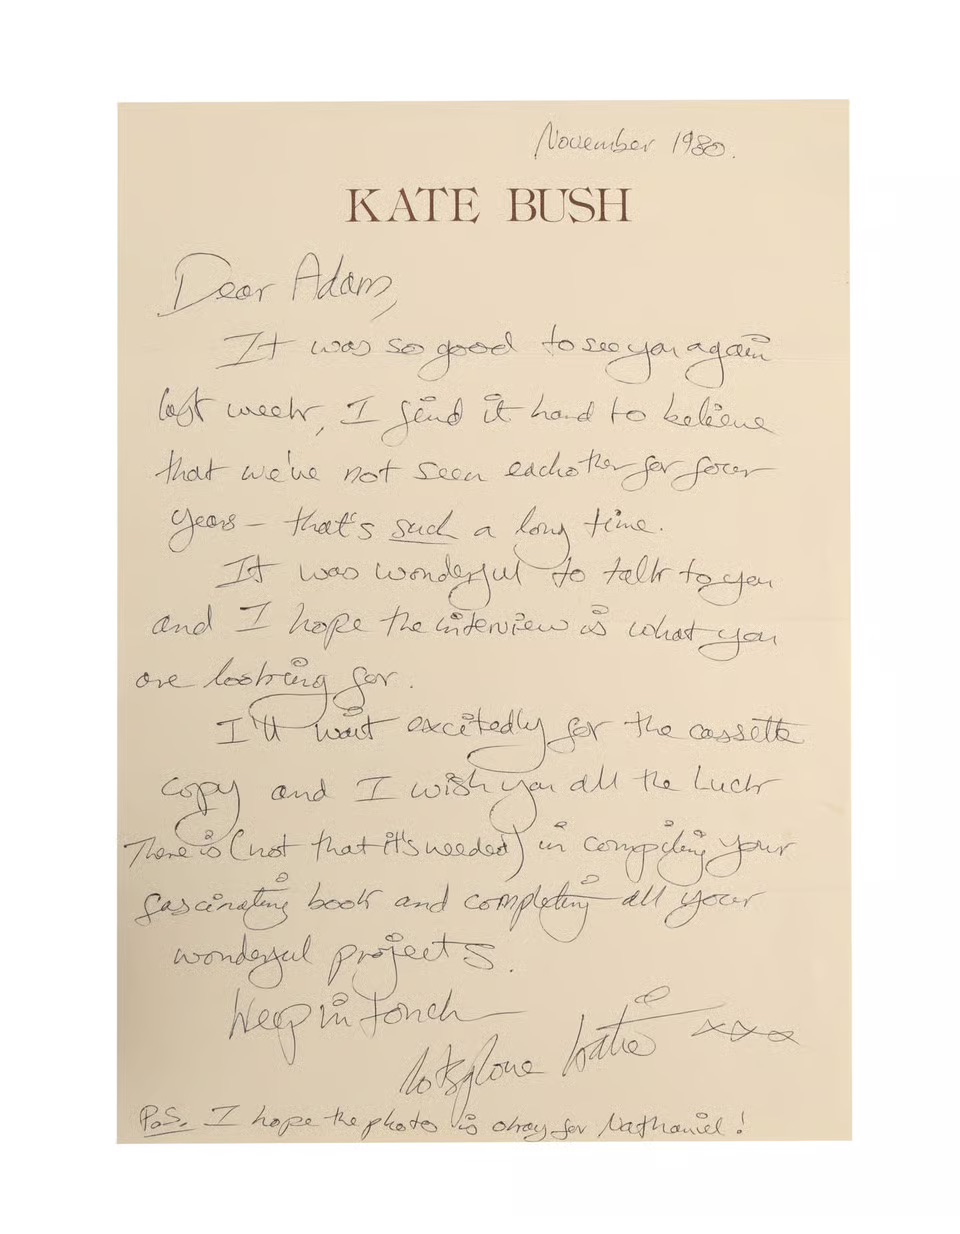 November 1980.
KATE BUSH
Dear Adam,
It was so good to see you again
last week, I find it hard to believe
that we've not seen eachother for four
years – that's such a long time.
It was wonderful to talk to you
and I hope the interview is what you
are looking for.
I'll wait excitedly for the cassette
copy and I wish you all the luck
There is (not that it's needed) in compiling your
fascinating book and completing all your
wonderful projects.
Keep in touch
lots of love Katie xxx
P.S. I hope the photo is okay for Nathaniel!